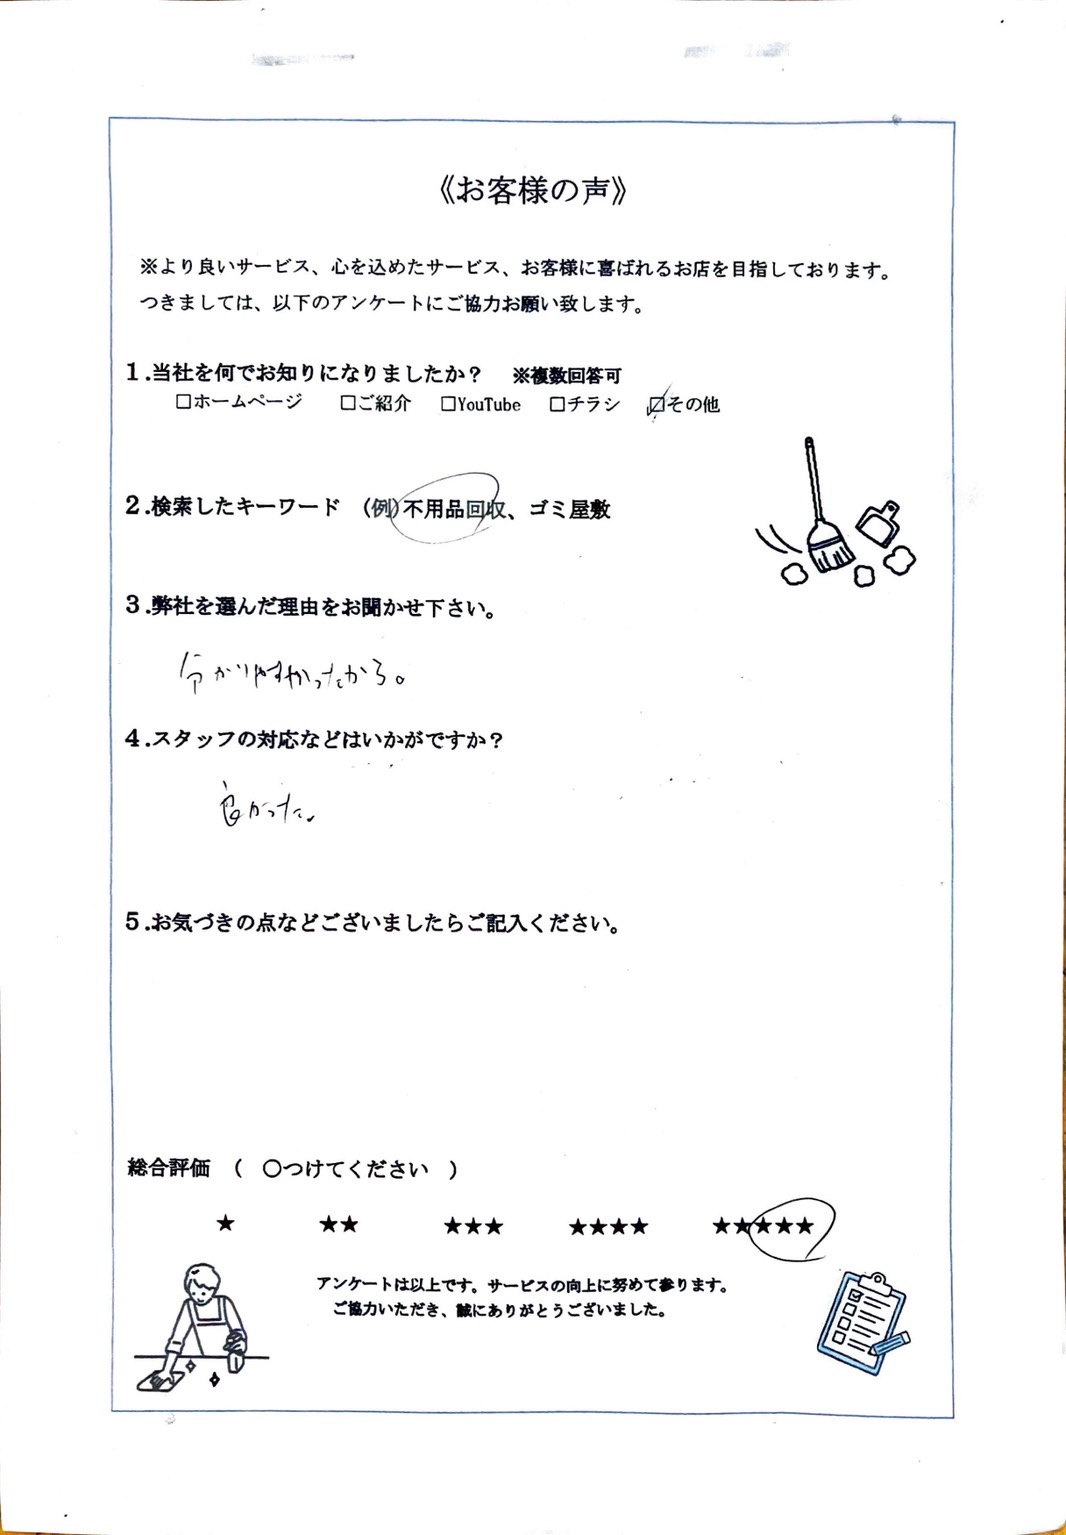 《お客様の声》
※より良いサービス、心を込めたサービス、お客様に喜ばれるお店を目指しております。
つきましては、以下のアンケートにご協力お願い致します。
1.当社を何でお知りになりましたか？ ※複数回答可
□ホームページ □ご紹介 □YouTube □チラシ ☑その他
2.検索したキーワード （例）不用品回収、ゴミ屋敷
3.弊社を選んだ理由をお聞かせ下さい。
分かりやすかったから。
4.スタッフの対応などはいかがですか？
良かった。
5.お気づきの点などございましたらご記入ください。
総合評価 （ ○つけてください ）
★ ★★ ★★★ ★★★★ ★★★★★
アンケートは以上です。サービスの向上に努めて参ります。
ご協力いただき、誠にありがとうございました。